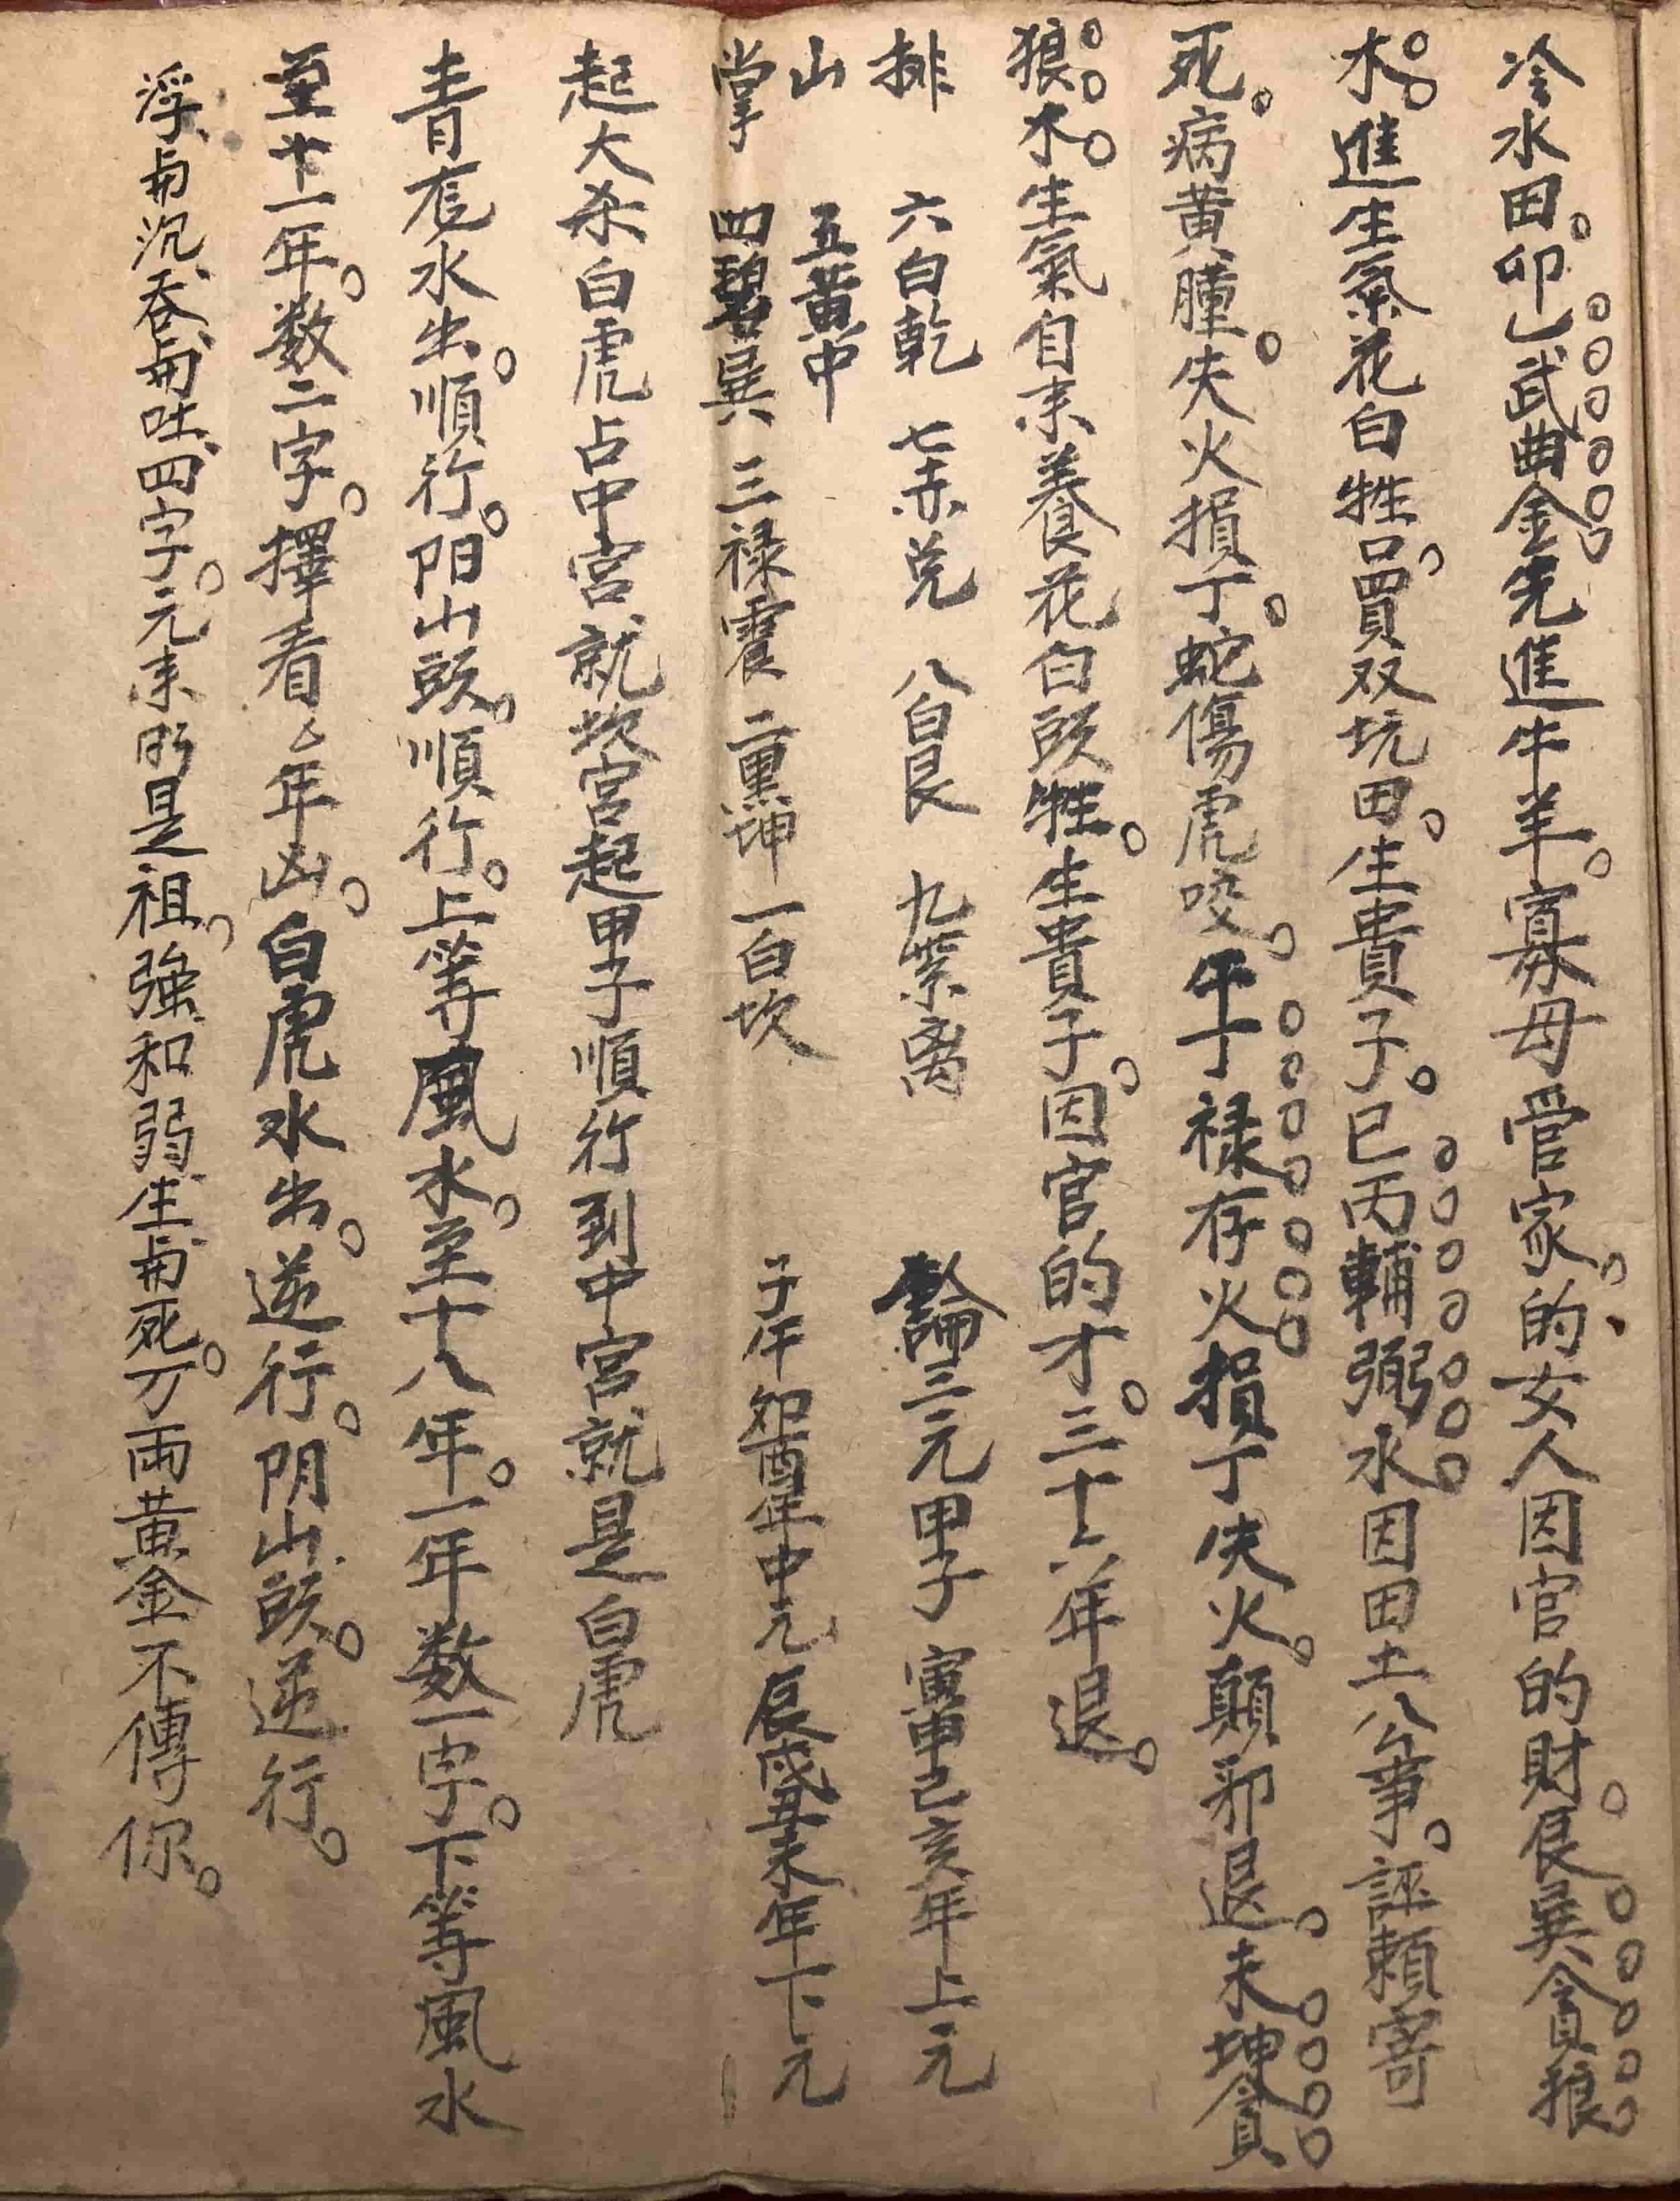 冷水田。卯乚武曲金先進牛羊。寡母管家。的女人因官的財。艮巽貪狼
木。進生氣花白牲口。買双坑田。生貴子。巳丙輔弼水因田土公事。誣賴寄
死。病黄腫。失火損丁。蛇傷虎咬。午丁禄存火損丁失火。顛邪退。未坤貪
狼木。生氣自来養花白頭牲。生貴子。因官的才。三十六年退。
排 六白乾 七赤兑 八白艮 九紫离 論三元甲子 寅申巳亥年上元
山 五黄中
掌 四碧巽 三禄震 二黑坤 一白坎 子午卯酉年中元 辰戌丑未年下元
起大杀白虎占中宫就坎宫起甲子順行到中宫就是白虎
青竜水出。順行。阳山頭。順行。上等風水。至十八年。一年数一字。下等風水
至十一年。数二字。擇看么年凶。白虎水出。逆行。阴山頭。逆行。
浮与沉、吞与吐、四字。元来即是祖。強和弱、生与死。万両黄金不傳你。